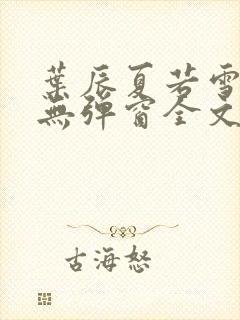 葉辰夏若雪
無彈窗全文
古海怒